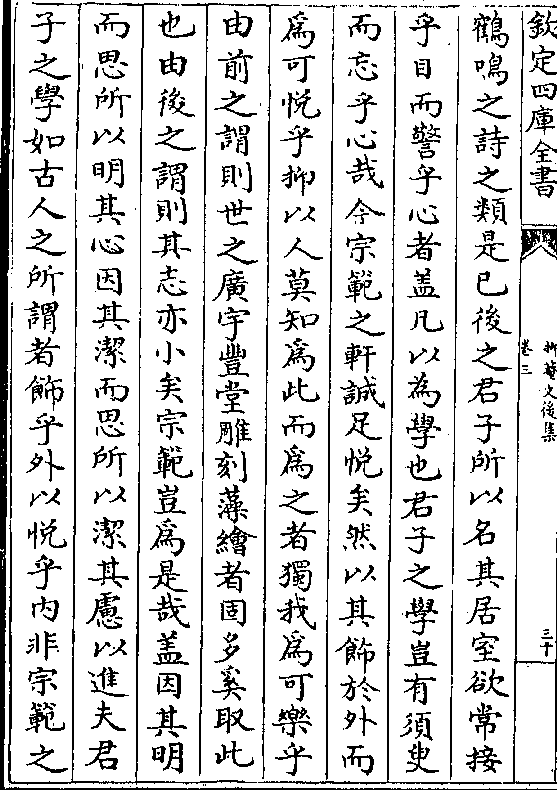 欽定四庫全書
折菴文後集
卷三
三十
鶴鳴之詩之類是已後之君子所以名其居室欲常接
乎目而警乎心者盖凡以為學也君子之學豈有須臾
而忘乎心哉今宗範之軒誠足悦矣然以其飾於外而
為可悦乎抑以人莫知為此而為之者獨我為可樂乎
由前之謂則世之廣宇豐堂雕刻藻繪者固多奚取此
也由後之謂則其志亦小矣宗範豈為是哉盖因其明
而思所以明其心因其潔而思所以潔其慮以進夫君
子之學如古人之所謂者飾乎外以悦乎内非宗範之